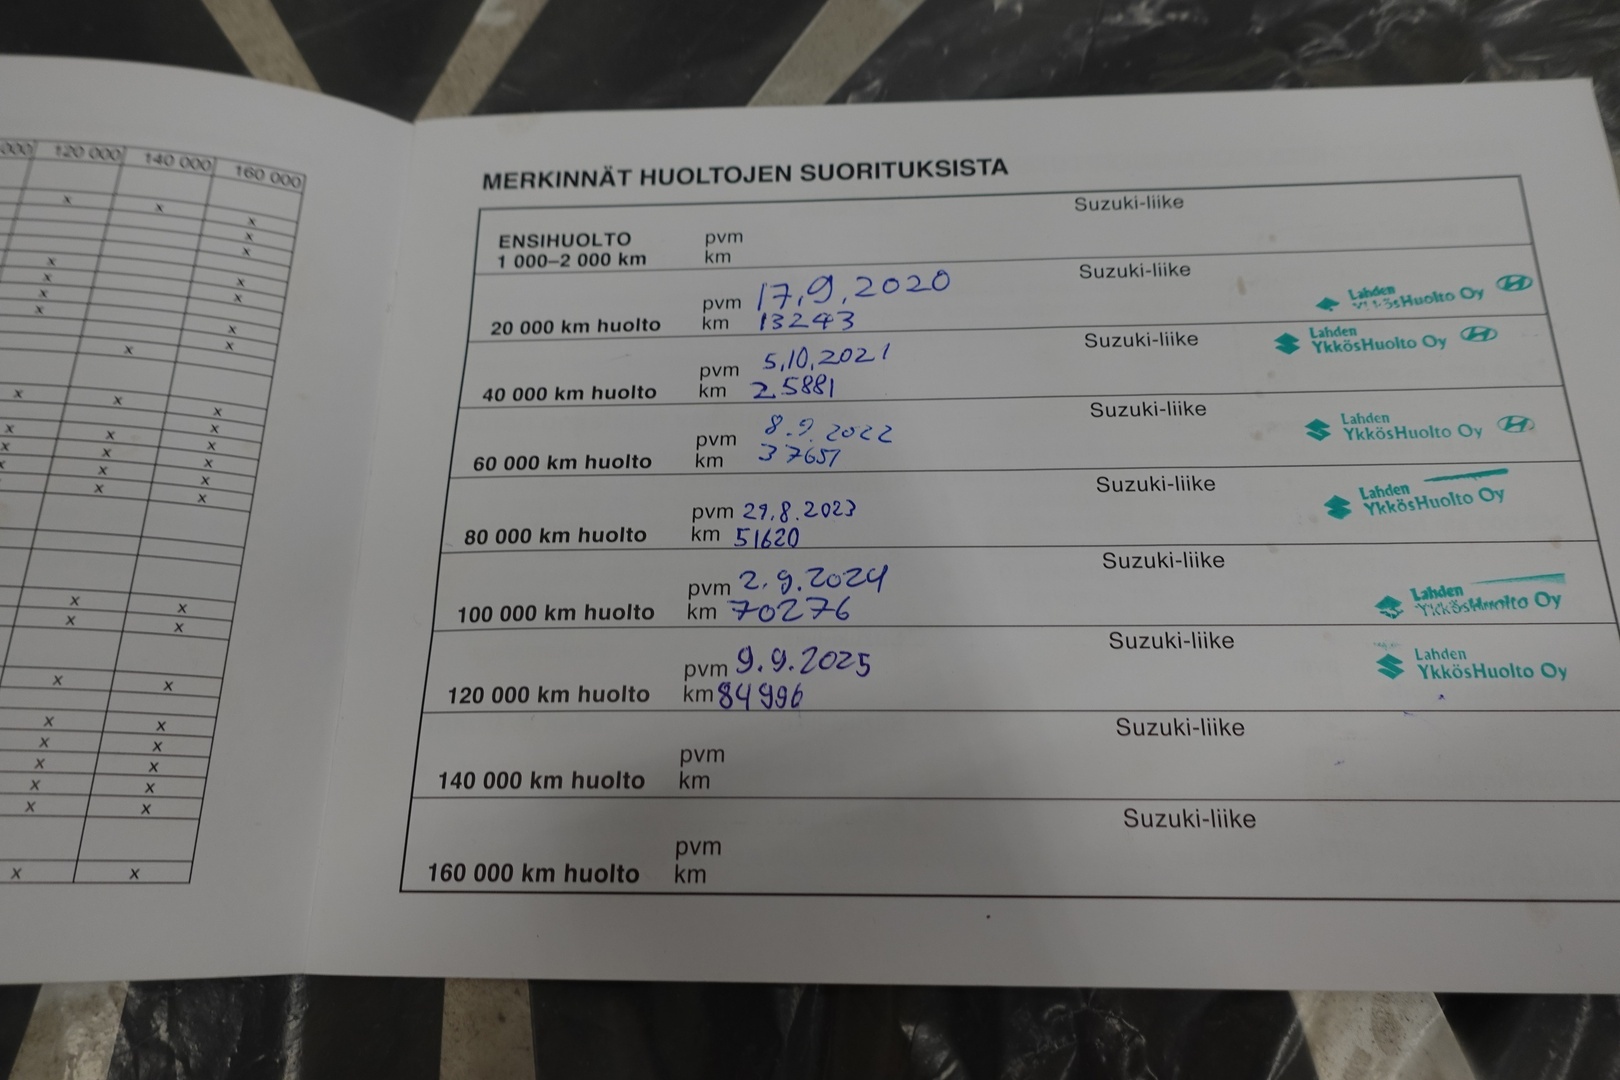 000 120 000 140 000 160 000
MERKINNÄT HUOLTOJEN SUORITUKSISTA
Suzuki-liike
ENSIHUOLTO pvm
1 000–2 000 km km
Suzuki-liike
pvm 17.9.2020
20 000 km huolto km 13243
Lahden
YkkösHuolto Oy
Suzuki-liike
pvm 5.10.2021
40 000 km huolto km 25881
Lahden
YkkösHuolto Oy
Suzuki-liike
pvm 8.9.2022
60 000 km huolto km 37651
Lahden
YkkösHuolto Oy
Suzuki-liike
pvm 29.8.2023
80 000 km huolto km 51620
Lahden
YkkösHuolto Oy
Suzuki-liike
pvm 2.9.2024
100 000 km huolto km 70276
Lahden
YkkösHuolto Oy
Suzuki-liike
pvm 9.9.2025
120 000 km huolto km 84996
Lahden
YkkösHuolto Oy
Suzuki-liike
pvm
140 000 km huolto km
Suzuki-liike
pvm
160 000 km huolto km